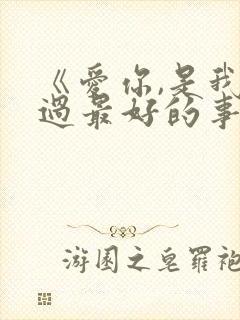 《爱你,是我
过最好的事
游园之皂罗袍